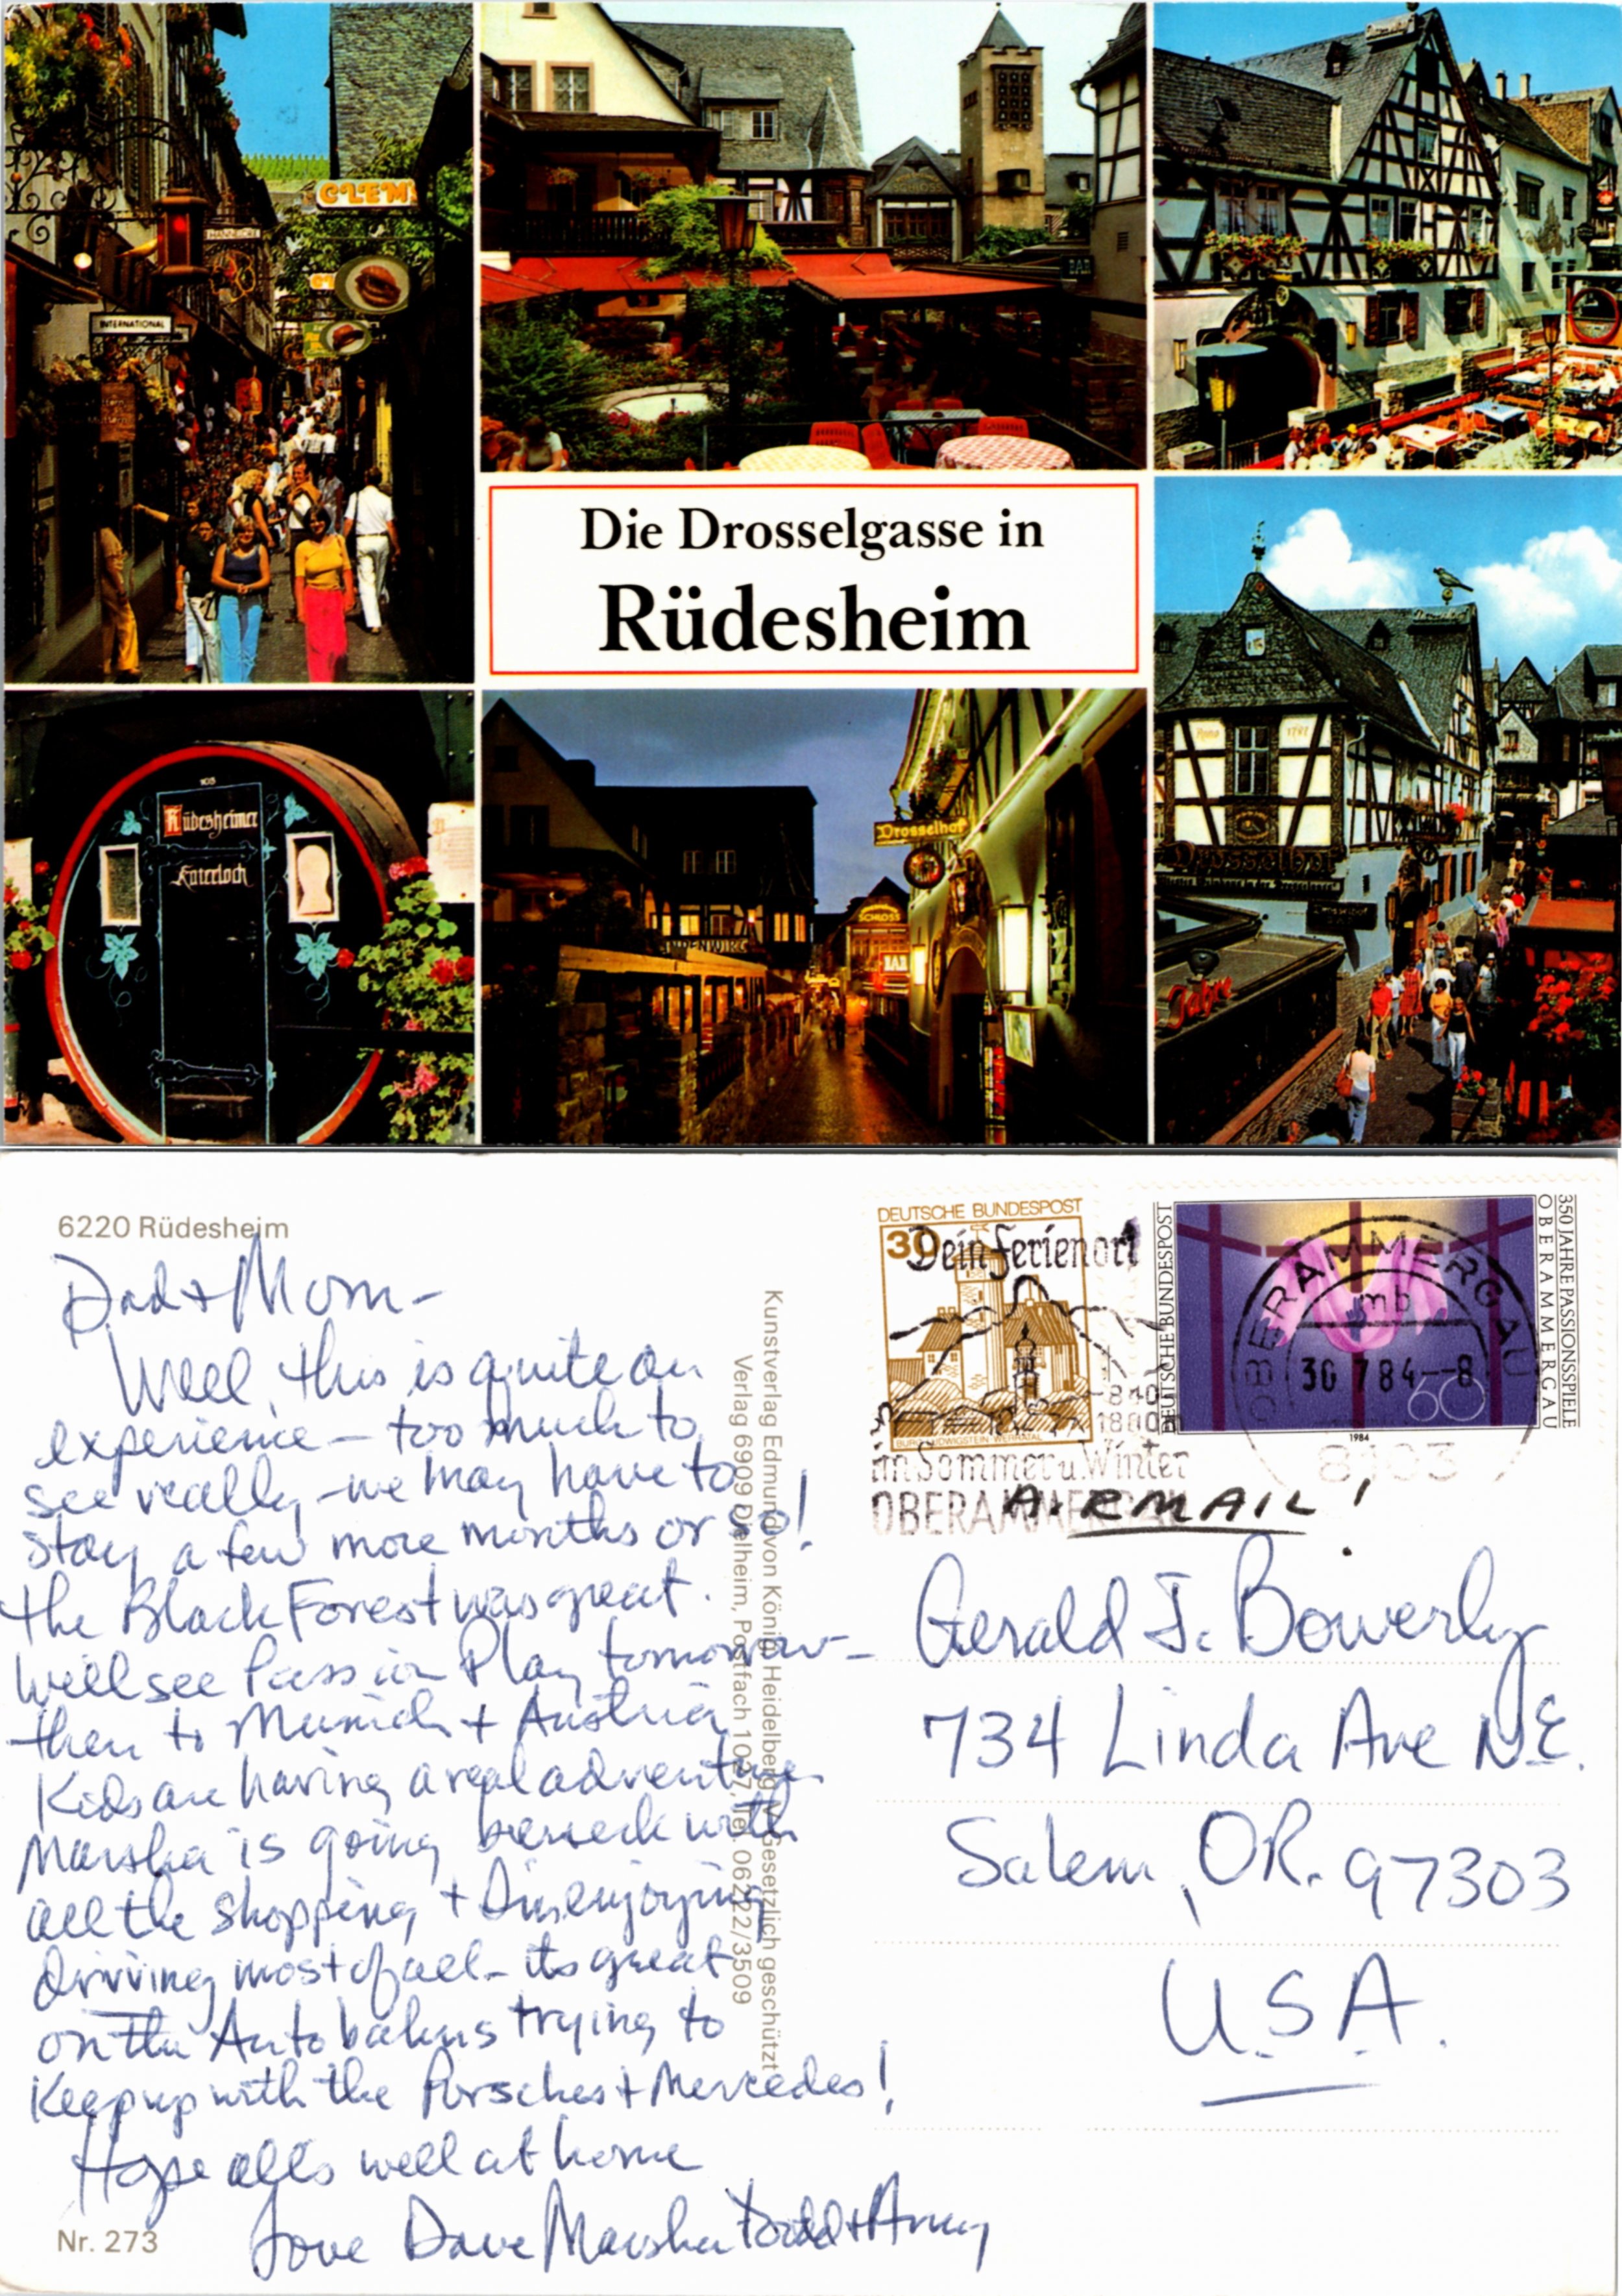 GLEM
INTERNATIONAL
SCHLOSS
BAR
Die Drosselgasse in
Rüdesheim
103
Rüdesheimer
Katerloch
Drosselhof
LINDENWIRT
SCHLOSS
BAR
Anno 1727
Drosselhof
Jahre
6220 Rüdesheim
Dad + Mom -
Well, this is quite an
experience - too much to
see really - we may have to
stay a few more months or so!
the Black Forest was great.
Will see Passion Play tomorrow -
then to Munich + Austria
Kids are having a real adventure
Marsha is going berserk with
all the shopping + I'm enjoying
driving most of all - its great
on the Autobahns trying to
keep up with the Porsches + Mercedes!
Hope alls well at home
Love Dave Marsha Todd + Amy
Nr. 273
Kunstverlag Edmund von König, Heidelberg, Gesetzlich geschützt
Verlag 6909 Dielheim, Postfach 1027, Tel. 06222/3509
DEUTSCHE BUNDESPOST
30
BURG LUDWIGSTEIN WERRATAL
Dein Ferienort
840-
1800m
im Sommer u. Winter
OBERAMMERGAU
DEUTSCHE BUNDESPOST
350 JAHRE PASSIONSSPIELE
OBERAMMERGAU
60
1984
OBERAMMERGAU
mb
30 7 84--8
8103
AIRMAIL!
Gerald J. Bowerly
734 Linda Ave NE.
Salem, OR. 97303
U.S.A.